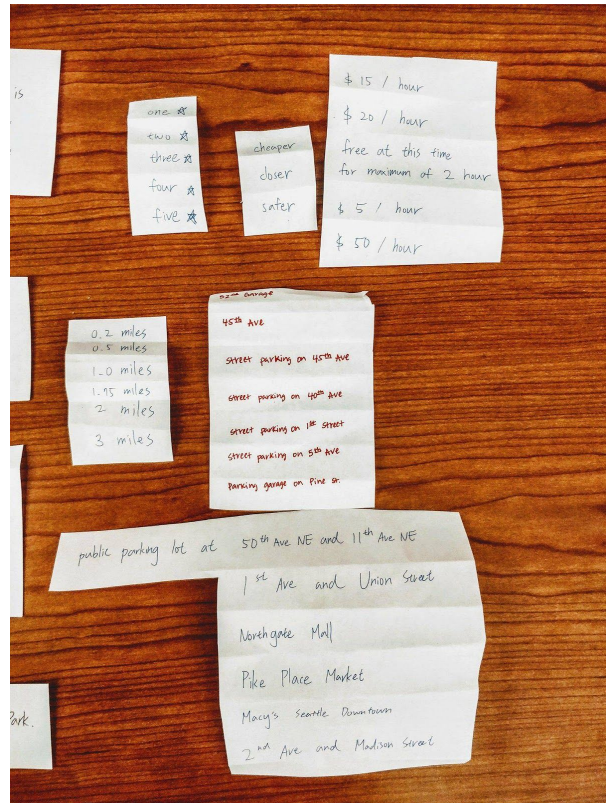 is
one ☆
two ☆
three ☆
four ☆
five ☆
cheaper
closer
safer
$ 15 / hour
$ 20 / hour
free at this time
for maximum of 2 hour
$ 5 / hour
$ 50 / hour
0.2 miles
0.5 miles
1.0 miles
1.75 miles
2 miles
3 miles
Garage
45th Ave
street parking on 45th Ave
street parking on 40th Ave
street parking on 1st street
street parking on 5th Ave
Parking garage on Pine St.
public parking lot at 50th Ave NE and 11th Ave NE
1st Ave and Union Street
Northgate Mall
Pike Place Market
Macy's Seattle Downtown
2nd Ave and Madison Street
Park.